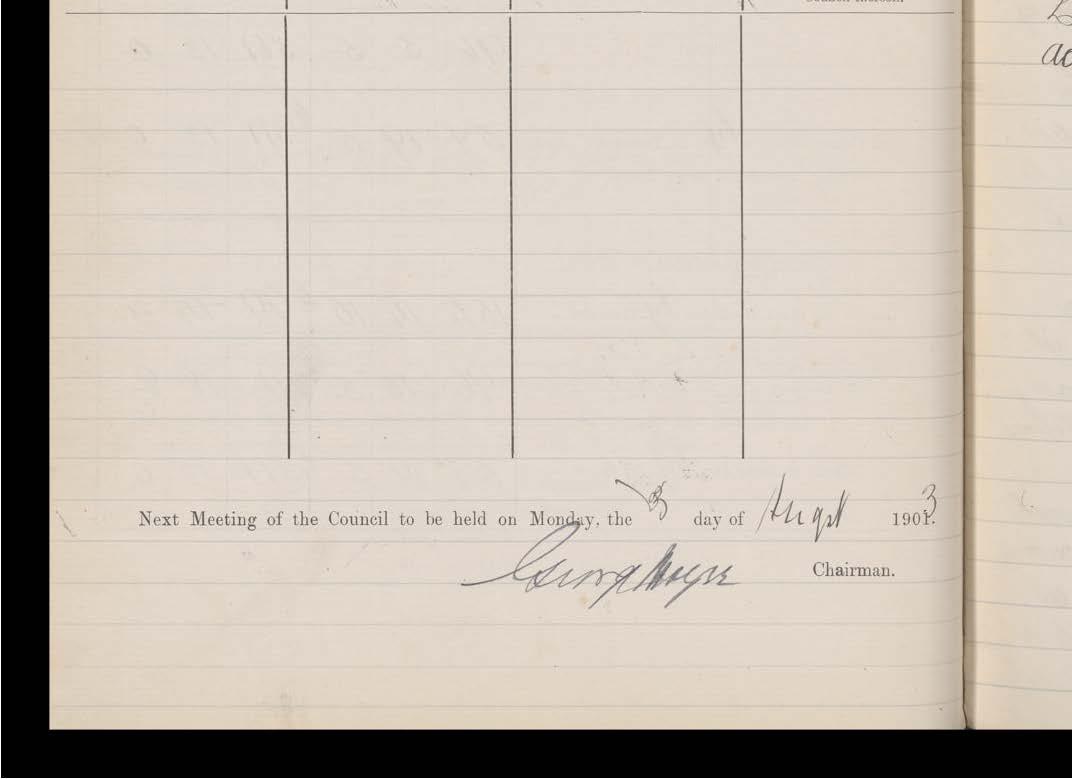 Council thereon.
ac
Next Meeting of the Council to be held on Monday, the 3 day of Augst 1903.
George
Chairman.